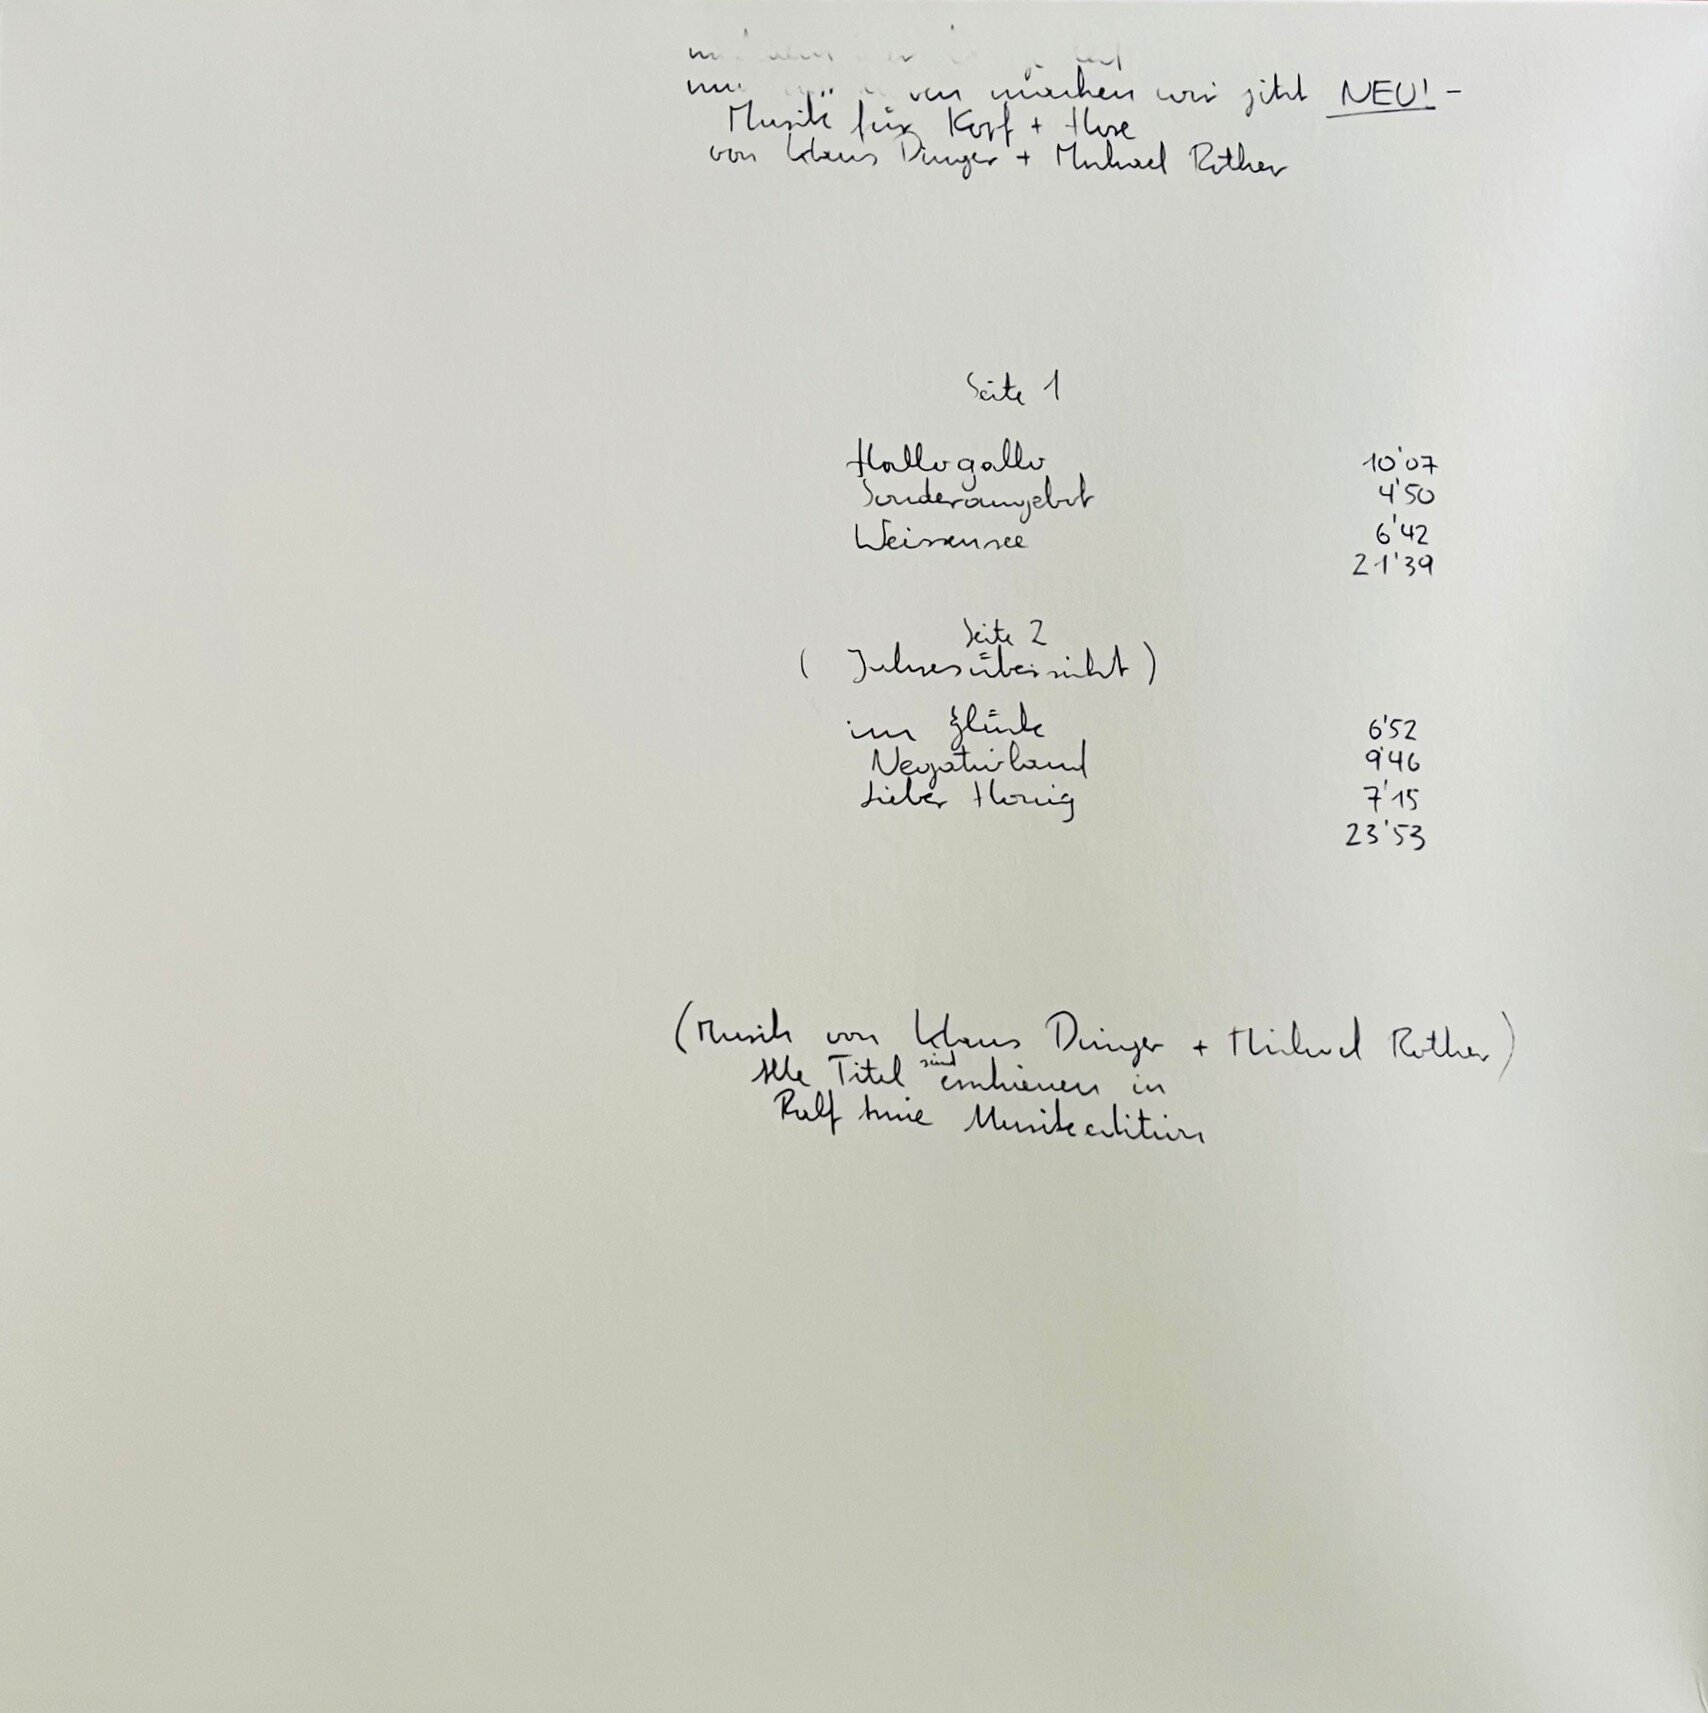 machen wir jetzt NEU! -
Musik für Kopf + Hose
von Klaus Dinger + Michael Rother
Seite 1
Hallogallo 10'07
Sonderangebot 4'50
Weissensee 6'42
21'39
Seite 2
( Jahresübersicht )
im Glück 6'52
Negativland 9'46
Lieber Honig 7'15
23'53
(Musik von Klaus Dinger + Michael Rother)
Alle Titel sind erschienen in
Ralf Arnie Musikedition